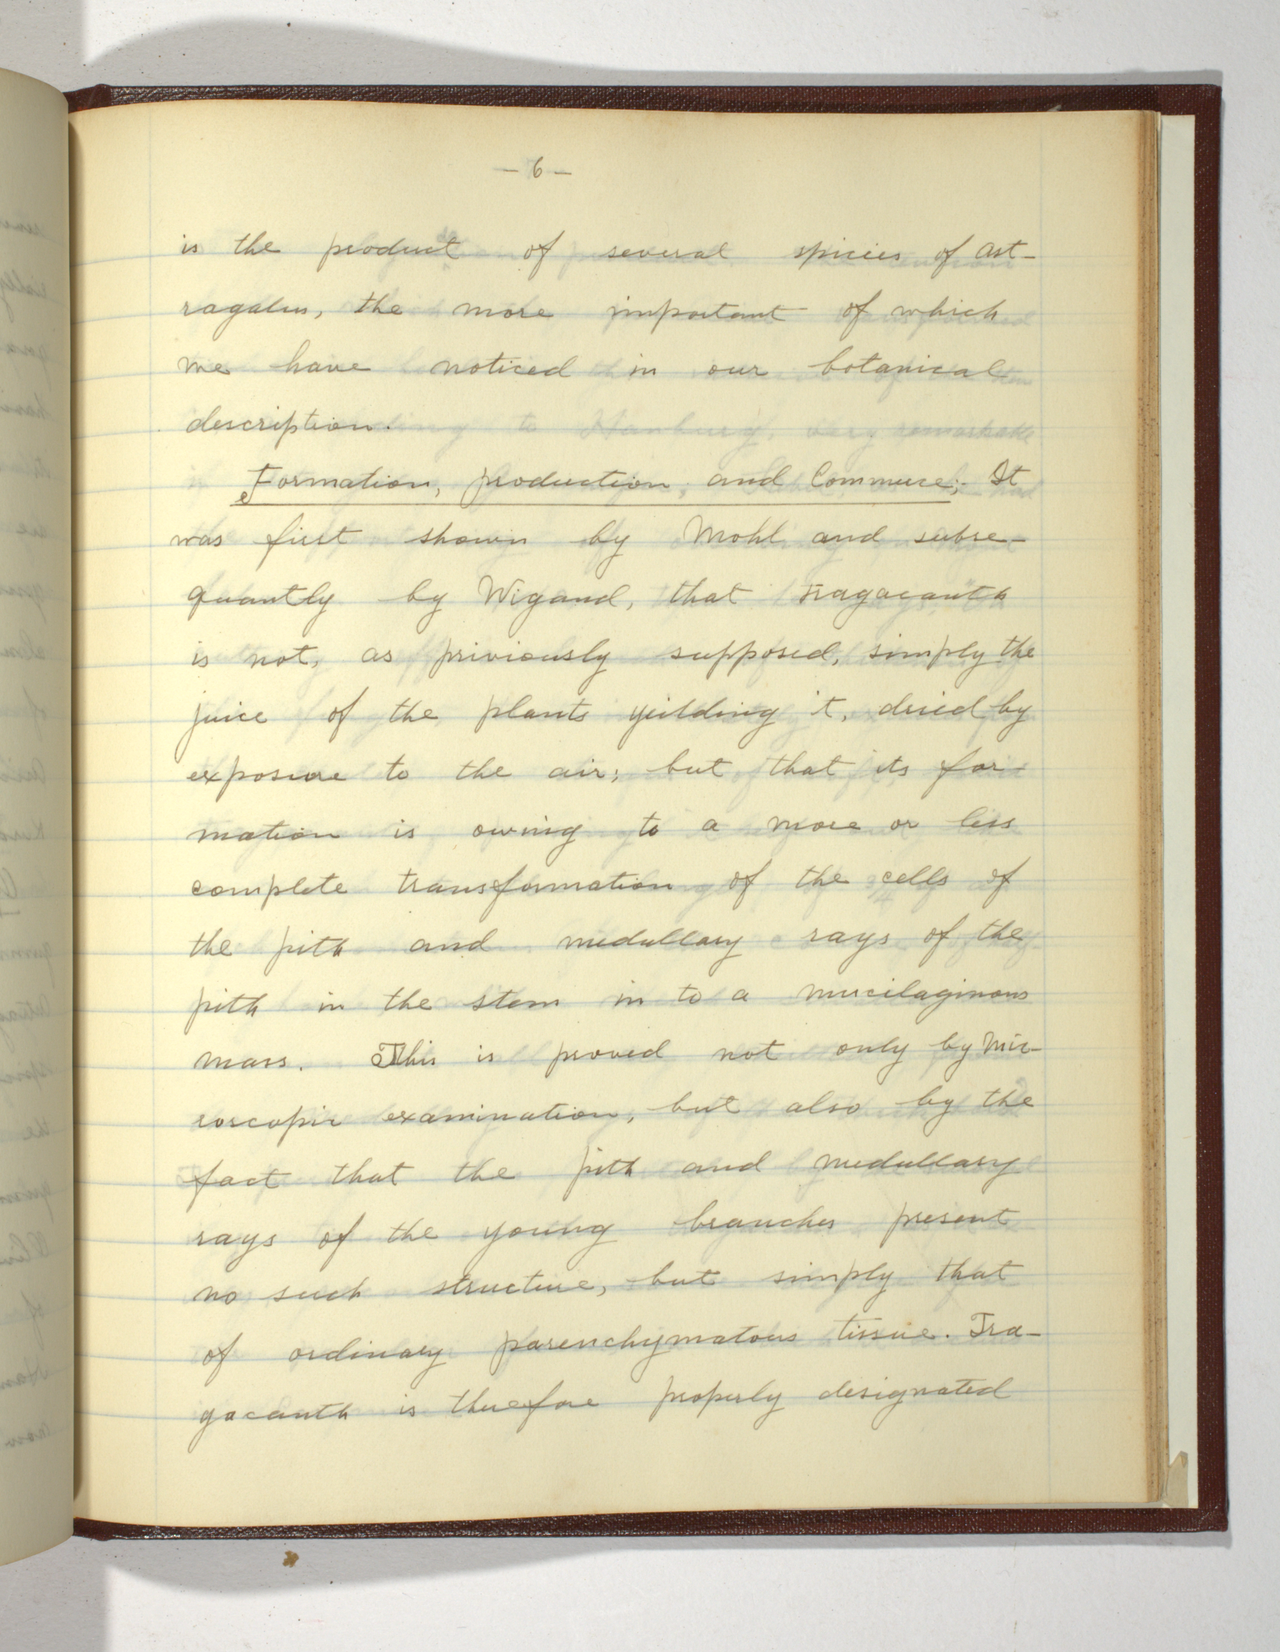 - 6 -
is the product of several spicies of Ast-
ragalus, the more important of which
we have noticed in our botanical
description.
Formation, production, and Commerce;- It
was first shown by Mohl and subse-
quantly by Wigand, that tragacanth
is not, as priviously supposed, simply the
juice of the plants yeilding it, dried by
exposure to the air; but that its for-
mation is owing to a more or less
complete transformation of the cells of
the pith and medullary rays of the
pith in the stem in to a mucilaginous
mass. This is proved not only by Mic-
roscopic examination, but also by the
fact that the pith and medullary
rays of the young branches present
no such structure, but simply that
of ordinary parenchymatous tissue. Tra-
gacanth is therefore properly designated